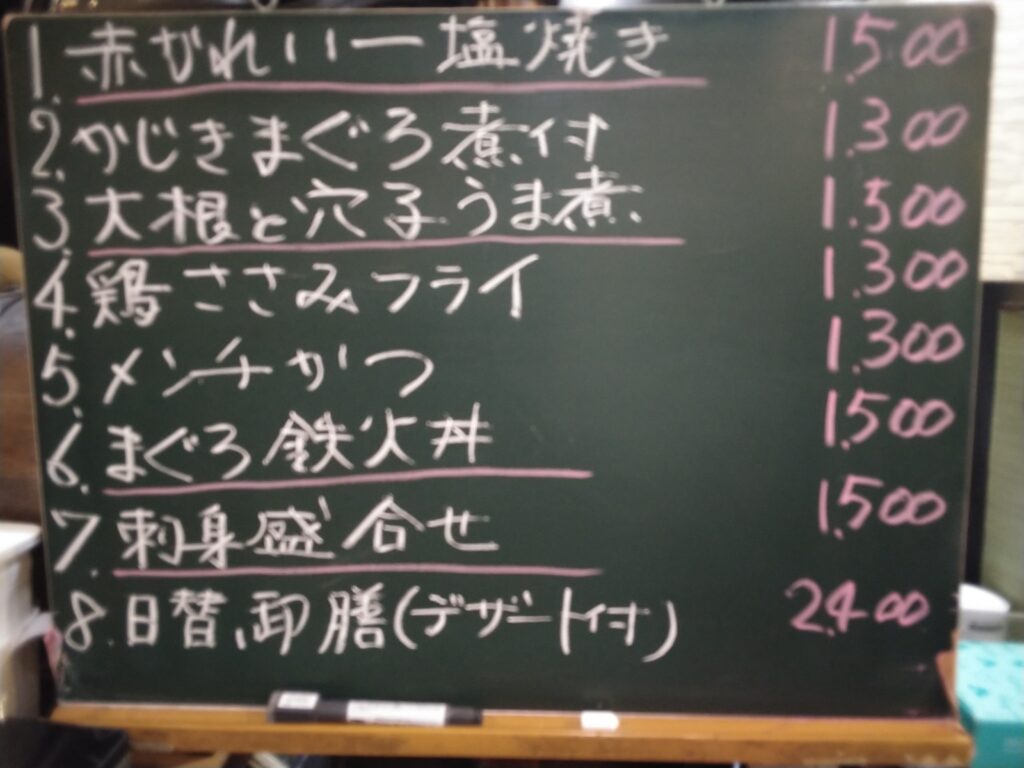 1. 赤がれい一塩焼き 1.500
2. かじきまぐろ煮付 1.300
3. 大根と穴子うま煮 1.500
4. 鶏ささみフライ 1.300
5. メンチかつ 1.300
6. まぐろ鉄火丼 1.500
7. 刺身盛合せ 1.500
8. 日替り御膳(デザート付) 2.400